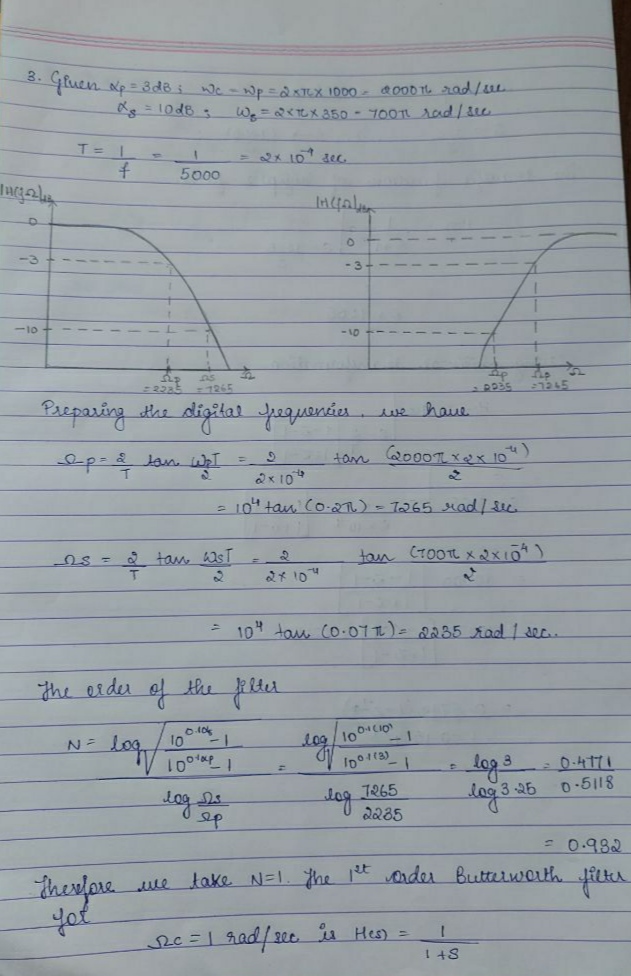 3. Given αp = 3dB ; wc = wp = 2×π×1000 = 2000π rad/sec
αs = 10dB ; ws = 2×π×350 = 700π rad/sec
T = 1/f = 1/5000 = 2×10⁻⁴ sec
|H(jΩ)| |H(jΩ)|
0 0
-3 -3
-10 -10
Ωp Ωs Ω Ωp Ωp Ω
=2235 =7265 =2235 =7265
Preparing the digital frequencies, we have
Ωp = 2/T tan wpT/2 = 2/2×10⁻⁴ tan (2000π×2×10⁻⁴)/2
= 10⁴ tan (0.2π) = 7265 rad/sec
Ωs = 2/T tan wsT/2 = 2/2×10⁻⁴ tan (700π×2×10⁻⁴)/2
= 10⁴ tan (0.07π) = 2235 rad/sec.
The order of the filter
N = log √(10^0.1αs -1 / 10^0.1αp -1) / log Ωs/Ωp = log √(10^0.1(10) -1 / 10^0.1(3) -1) / log 7265/2235 = log 3 / log 3.25 = 0.4771 / 0.5118
= 0.932
Therefore we take N=1. The 1st order Butterworth filter
for
Ωc = 1 rad/sec is H(s) = 1/1+S